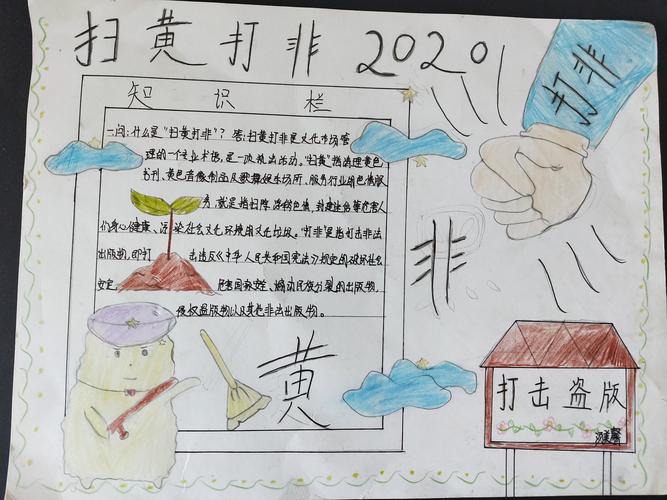 扫黄打非 2020
知识栏
一问:什么是"扫黄打非"? 答:扫黄打非是文化市场管
理的一个专业术语,是一项执法活动。"扫黄"指清理黄色
书刊、黄色音像制品及歌舞娱乐场所、服务行业的色情服
务,就是指扫除 淫秽色情、封建迷信等危害人
们身心健康、污染社会文化环境的文化垃圾。"打非"是指打击非法
出版物,即打 击违反《中华人民共和国宪法》规定的破坏社会
安定、 危害国家安全、煽动民族分裂的出版物,
侵权盗版物以及其他非法出版物。
打非
非
黄
打击盗版